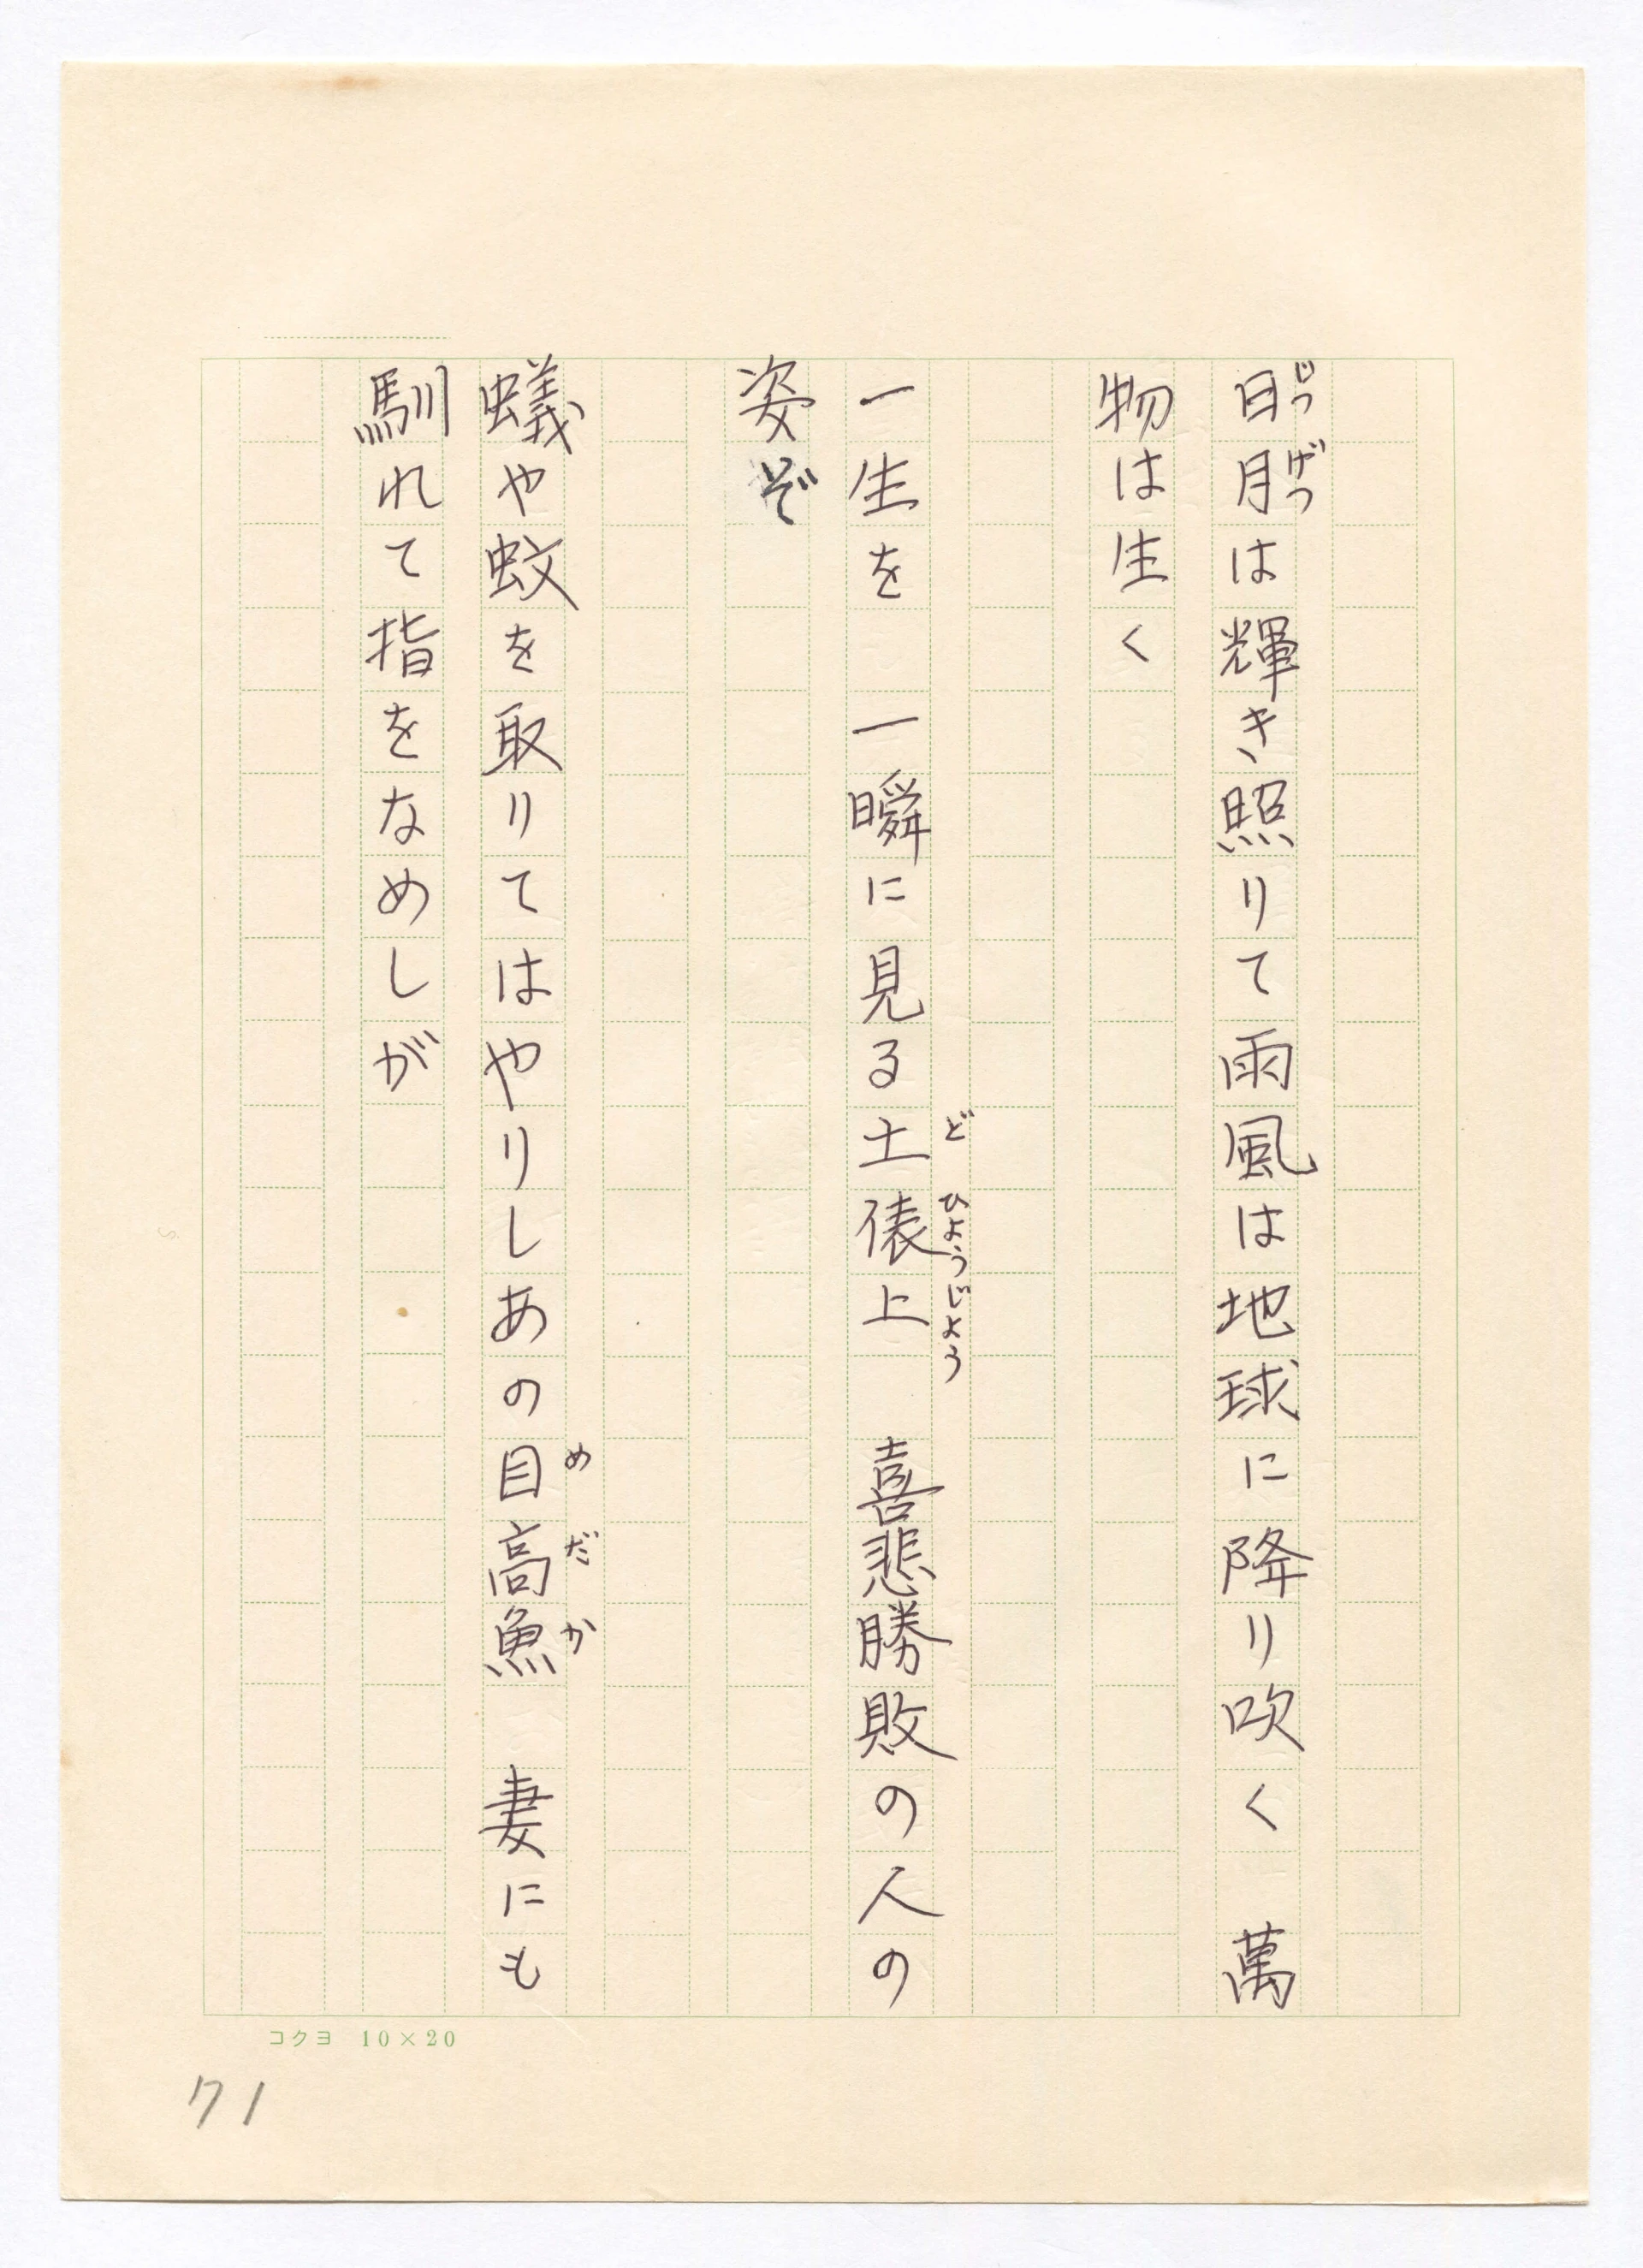 日月は輝き照りて雨風は地球に降り吹く　萬
じつげつ
物は生く
一生を　一瞬に見る土俵上　喜悲勝敗の人の
どひょうじょう
姿ぞ
蟻や蚊を取りてはやりしあの目高魚　妻にも
めだか
馴れて指をなめしが
コクヨ 10×20
71